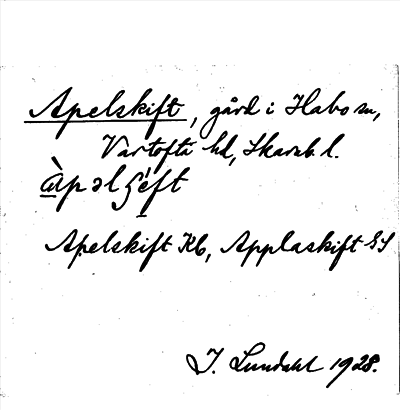 Apelskift, gård i Habo sn,
Vartofta hd, Skarab. l.
Apelskift Kb, Applaskift GS
I. Lundahl 1928.